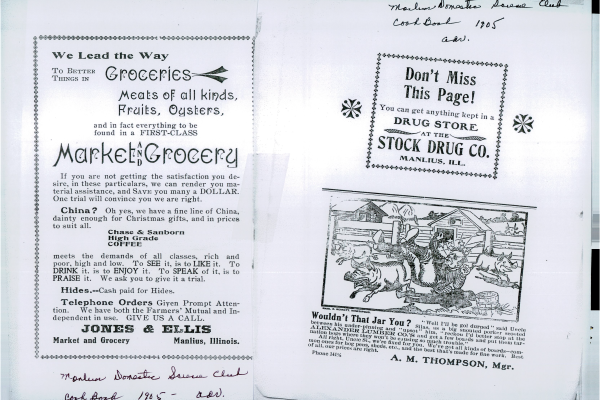 We Lead the Way
To Better
Things in
Groceries
Meats of all kinds,
Fruits, Oysters,
and in fact everything to be
found in a FIRST-CLASS
Market AND Grocery
If you are not getting the satisfaction you de-
sire, in these particulars, we can render you ma-
terial assistance, and SAVE you many a DOLLAR.
One trial will convince you we are right.
China? Oh yes, we have a fine line of China,
dainty enough for Christmas gifts, and in prices
to suit all.
Chase & Sanborn
High Grade
COFFEE
meets the demands of all classes, rich and
poor, high and low. To SEE it, is to LIKE it. To
DRINK it, is to ENJOY it. To SPEAK of it, is to
PRAISE it. We ask you to give it a trial.
Hides.--Cash paid for Hides.
Telephone Orders Given Prompt Atten-
tion. We have both the Farmers' Mutual and In-
dependent in use. GIVE US A CALL.
JONES & ELLIS
Market and Grocery Manlius, Illinois.
Manlius Domestic Science Club
Cook Book 1905 - adv.
Manlius Domestic Science Club
Cook Book 1905
adv.
Don't Miss
This Page!
You can get anything kept in a
DRUG STORE
AT THE
STOCK DRUG CO.
MANLIUS, ILL.
Wouldn't That Jar You? "Well I'll be gol durned" said Uncle
between his sudor-pinning and "quost" him, "reckon I'd better stop at the
ALEXANDER LUMBER CO.'S and get a few boards and put them
nation hogs where they won't be causing so much trouble."
All right, Uncle Si, we're fixed for you. We've got all kinds of boards--com-
mon ones for hog pens, sheds, etc., and the best that's made for fine work. Best
of all, our prices are right.
Phone
A. M. THOMPSON, Mgr.